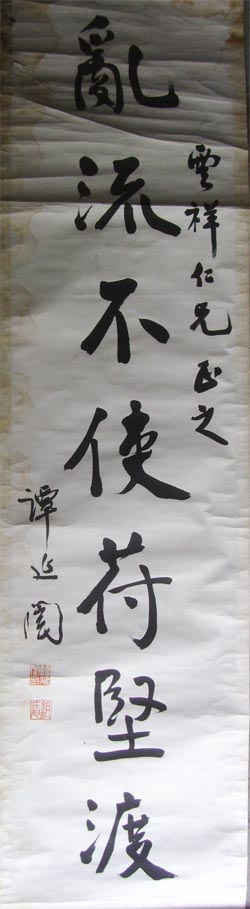 雲祥仁兄正之
亂流不使苻堅渡
譚延闓